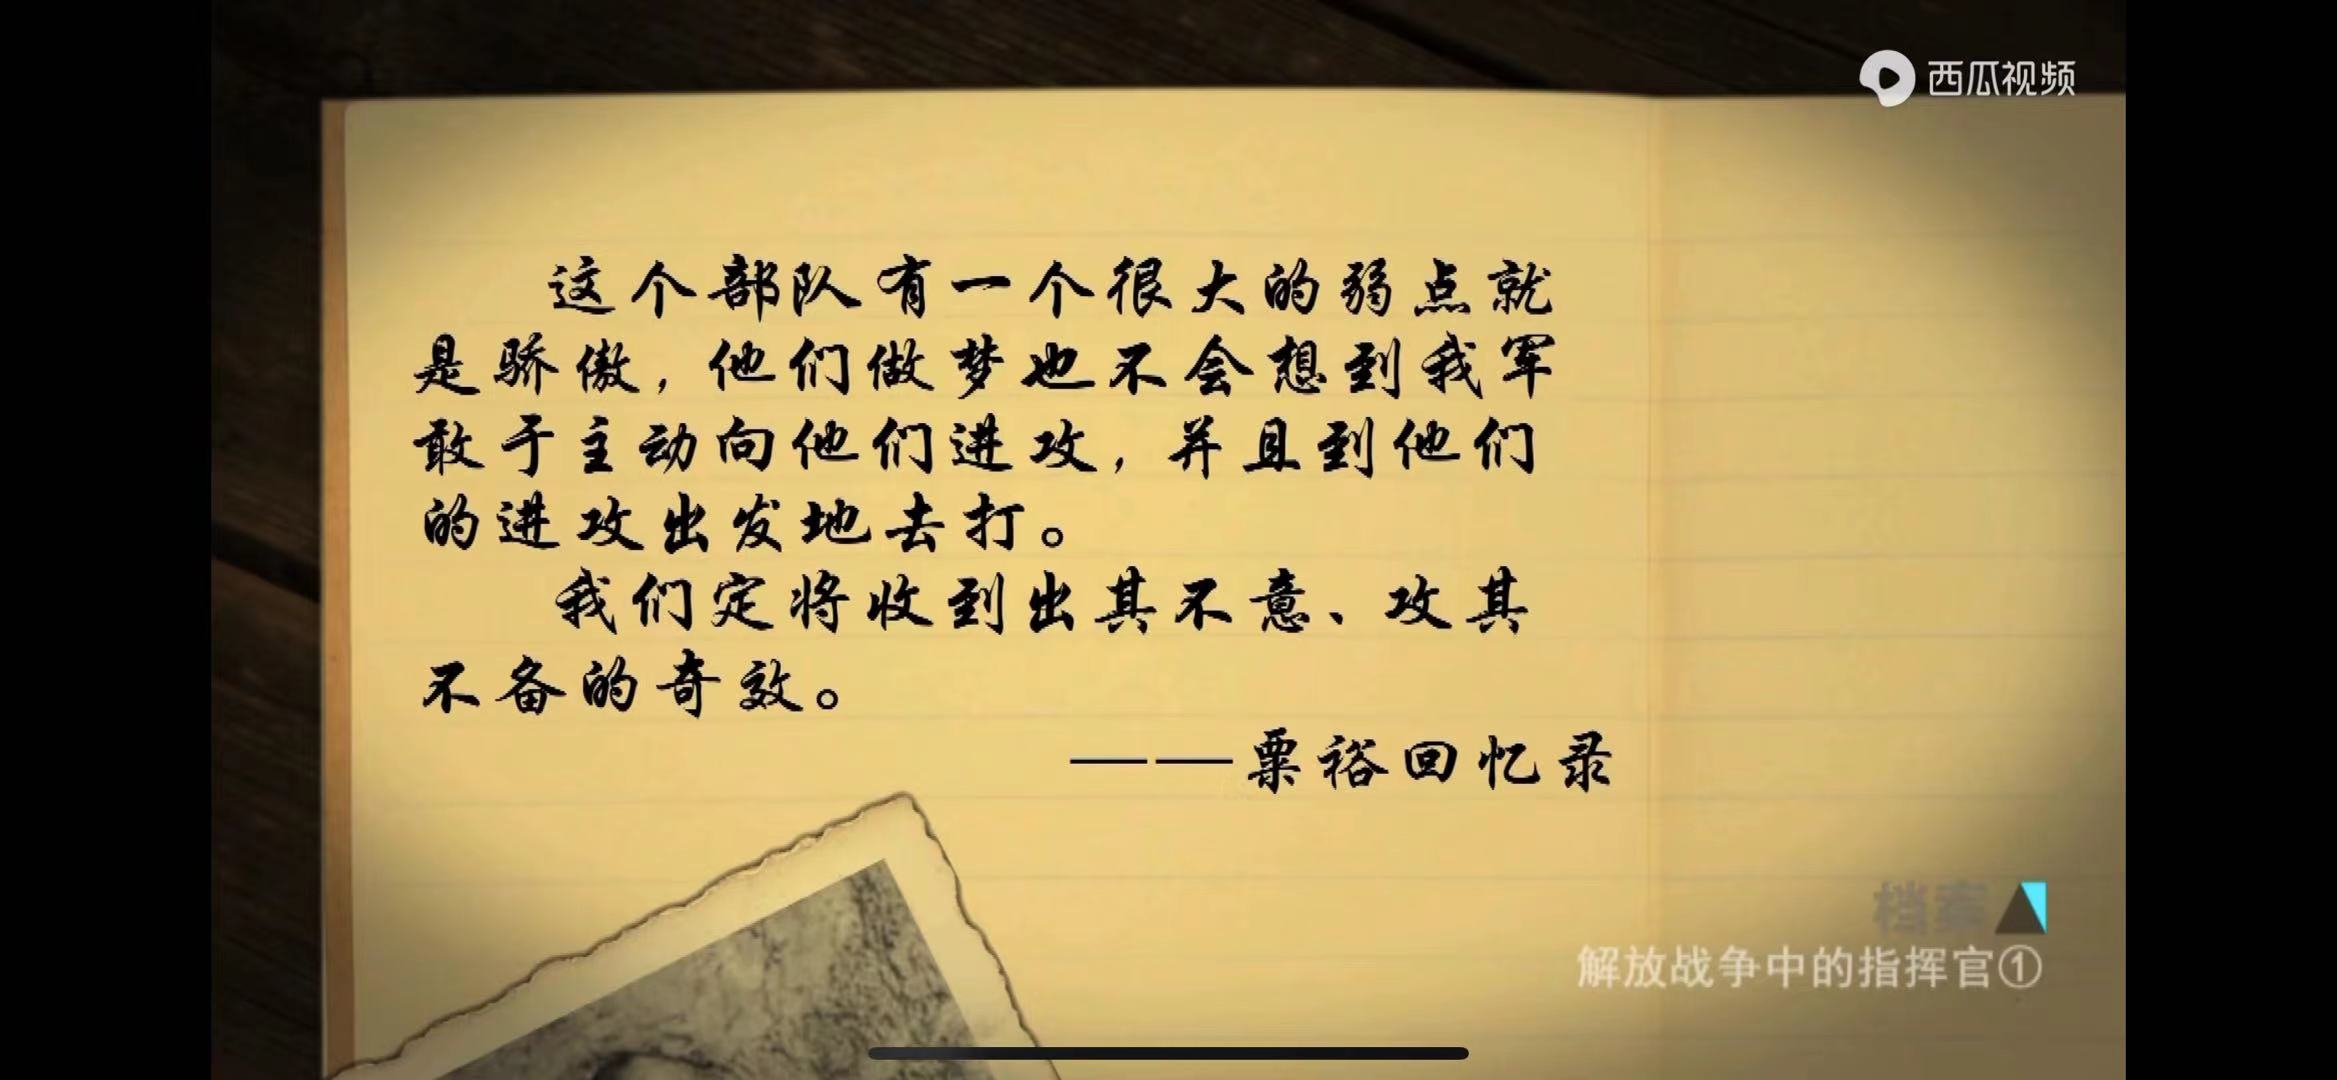 西瓜视频
这个部队有一个很大的弱点就
是骄傲，他们做梦也不会想到我军
敢于主动向他们进攻，并且到他们
的进攻出发地去打。
我们定将收到出其不意、攻其
不备的奇效。
——粟裕回忆录
档案
解放战争中的指挥官①